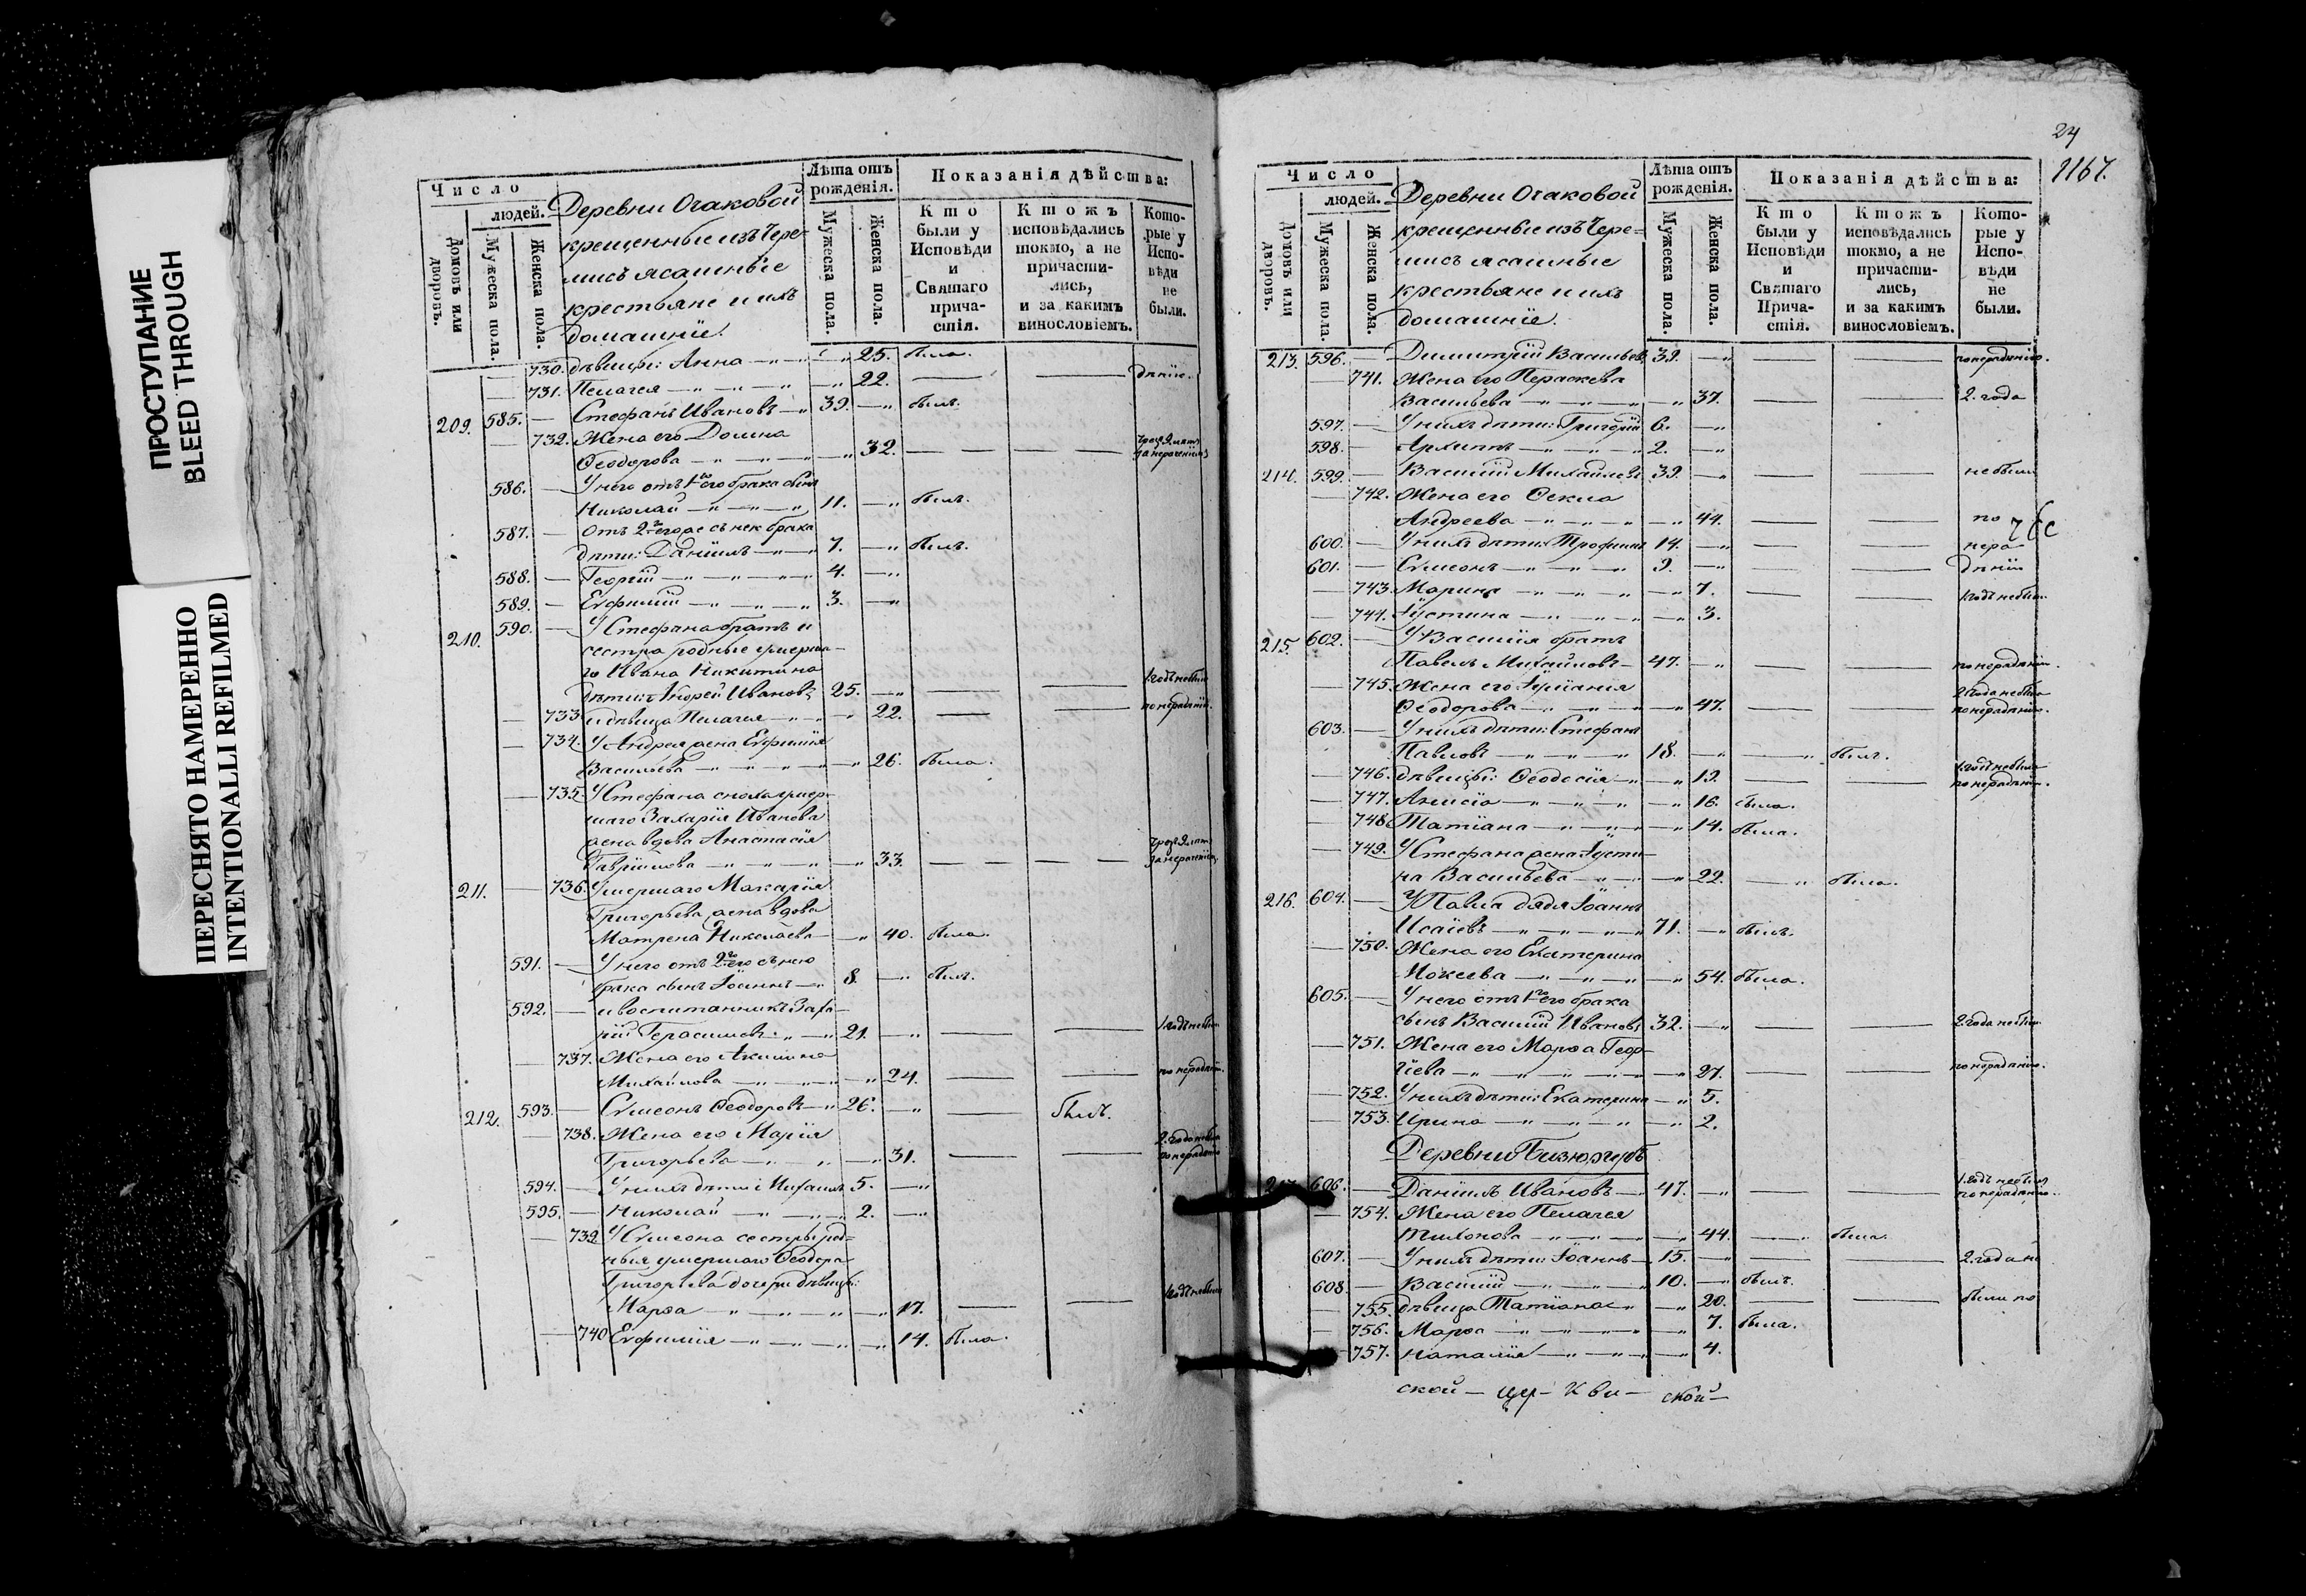 ПРОСТУПАНИЕ
BLEED THROUGH
ПЕРЕСНЯТО НАМЕРЕННО
INTENTIONALLI REFILMED
Число
людей.
Домовъ или дворовъ.
Мужеска пола.
Женска пола.
Деревни Огаковой
крещенные изъ Чере-
мисъ ясашные
крестьяне и ихъ
домашніе.
Лѣта отъ рожденія.
Мужеска пола.
Женска пола.
Показанія дѣйства:
Кто были у Исповѣди и Святаго прича- стія.
Ктожъ исповѣдались токмо, а не причасти- лись, и за какимъ винословіемъ.
Кото- рые у Испо- вѣди не были.
730. дѣвицы: Анна 25. была.
731. Пелагея 22. дѣнію.
209. 585. Стефанъ Ивановъ 39. былъ.
732. Жена его Домна
Ѳеодорова 32.
586. У него отъ 1го его брака сынъ
Николай 11. былъ.
587. Отъ 2го его же съ нею брака
дѣти: Даніилъ 7. былъ.
588. Георгій 4.
589. Евфимій 3.
210. 590. У Стефана братъ и
сестра родные умерша-
го Ивана Никитина 1. годъ небыли
дѣти: Андрей Ивановъ 25.
733. и дѣвица Пелагея 22. по нерадѣнію.
734. У Андрея жена Евфимія
Васильева 26. была.
735. У Стефана сноха умер-
шаго Захарія Иванова
жена вдова Анастасія
Гавріилова 33.
211. 736. Умершаго Макарія
Григорьева жена вдова
Матрена Николаева 40. была.
591. У него отъ 2го его съ нею
брака сынъ Іоаннъ 8. былъ.
592. и воспитанникъ Заха-
рій Герасимовъ 21. 1. годъ небыли
737. Жена его Акилина
Михайлова 24. по нерадѣнію.
212. 593. Симеонъ Ѳеодоровъ 26. былъ.
738. Жена его Марія
Григорьева 31. по нерадѣнію
594. У нихъ дѣти: Михаилъ 5.
595. Николай 2.
739. У Симеона сестры род-
ныя умершаго Ѳеодора
Григорьева дочери дѣвицы:
Марѳа 17. 1. годъ небыла
740. Евфимія 14. была.
24
1167.
Число
людей.
Домовъ или дворовъ.
Мужеска пола.
Женска пола.
Деревни Огаковой
крещенные изъ Чере-
мисъ ясашные
крестьяне и ихъ
домашніе.
Лѣта отъ рожденія.
Мужеска пола.
Женска пола.
Показанія дѣйства:
Кто были у Исповѣди и Святаго Прича- стія.
Ктожъ исповѣдались токмо, а не причасти- лись, и за какимъ винословіемъ.
Кото- рые у Испо- вѣди не были.
213. 596. Димитрій Васильевъ 39. по нерадѣнію.
741. Жена его Параскева
Васильева 37. 2. года
597. У нихъ дѣти: Григорій 6.
598. Архиппъ 2.
214. 599. Василій Михайловъ 39. небыли
742. Жена его Ѳекла
Андреева 44. по
600. У нихъ дѣти: Трофимъ 14. нера
601. Симеонъ 9. дѣнію
743. Марина 7. 1. годъ небыли
744. Іустина 3.
215. 602. У Василія братъ
Павелъ Михайловъ 47. по нерадѣнію.
745. Жена его Іуліанія 2. года небыла
Ѳеодорова 47. по нерадѣнію.
603. У нихъ дѣти: Стефанъ
Павловъ 18. былъ.
1. годъ небыла
746. дѣвицы: Ѳеодосія 19. по нерадѣнію.
747. Анисія 16. была.
748. Татіана 14. была.
749. У Стефана жена Іусти-
на Васильева 22. была.
216. 604. У Павла дядя Іоаннъ
Исаіевъ 71. былъ.
750. Жена его Екатерина
Мокеева 54. была.
605. У него отъ 1го его брака
сынъ Василій Ивановъ 32. 2. года небыли
751. Жена его Марѳа Геор-
гіева 27. по нерадѣнію.
752. У нихъ дѣти: Екатерина 5.
753. Ирина 2.
Деревни Бизюргубъ
606. Даніилъ Ивановъ 47. 1. годъ небылъ по нерадѣнію.
754. Жена его Пелагея
Тихонова 44. была.
607. У нихъ дѣти: Іоаннъ 15. 2. года не
608. Василій 10. былъ.
755. дѣвица Татіана 20. были по
756. Марѳа 7. была.
757. Наталія 4.
ской — цр — кви — ской —